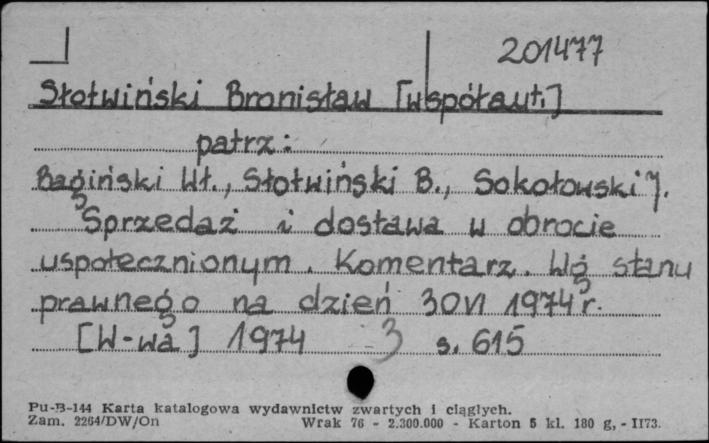 201477
Słotwiński Bronisław [współaut.]
patrz:
Bagiński Wł., Słotwiński B., Sokołowski J.
Sprzedaż i dostawa w obrocie
uspołecznionym. Komentarz. Wg stanu
prawnego na dzień 30 VI 1974 r.
[W-wa] 1974 3 s. 615
Pu-B-144 Karta katalogowa wydawnictw zwartych i ciągłych.
Zam. 2264/DW/On Wrak 76 - 2.300.000 - Karton 5 kl. 180 g, - II73.